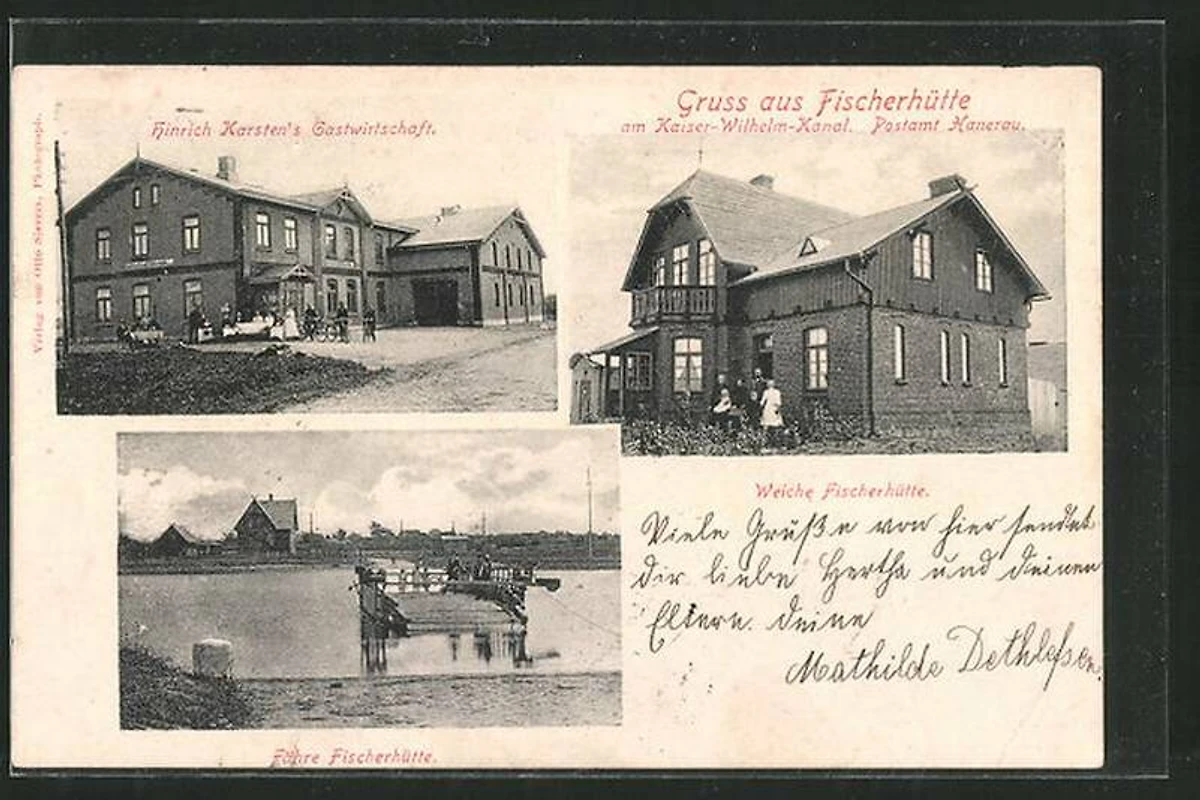 Gruss aus Fischerhütte
am Kaiser-Wilhelm-Kanal. Postamt Hanerau.
Hinrich Karsten's Gastwirtschaft.
Verlag von Otto Sievers, Photograph.
Weiche Fischerhütte.
Viele Grüße von hier sendet
dir liebe Hertha und deinen
Eltern. deine
Mathilde Dethlefsen.
Fähre Fischerhütte.